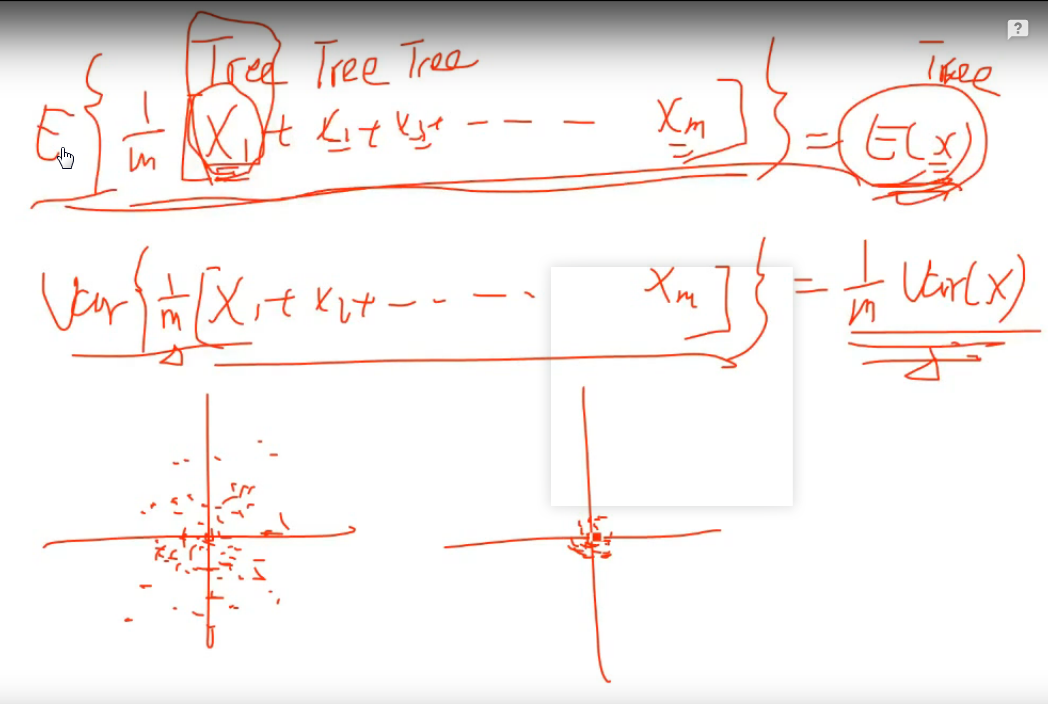 Tree Tree Tree Tree
E { 1/m [ X₁ + x₁ + x₃ + - - - - xₘ ] } = E(x)
Var { 1/m [ X₁ + x₂ + - - - - - xₘ ] } = 1/m Var(X)